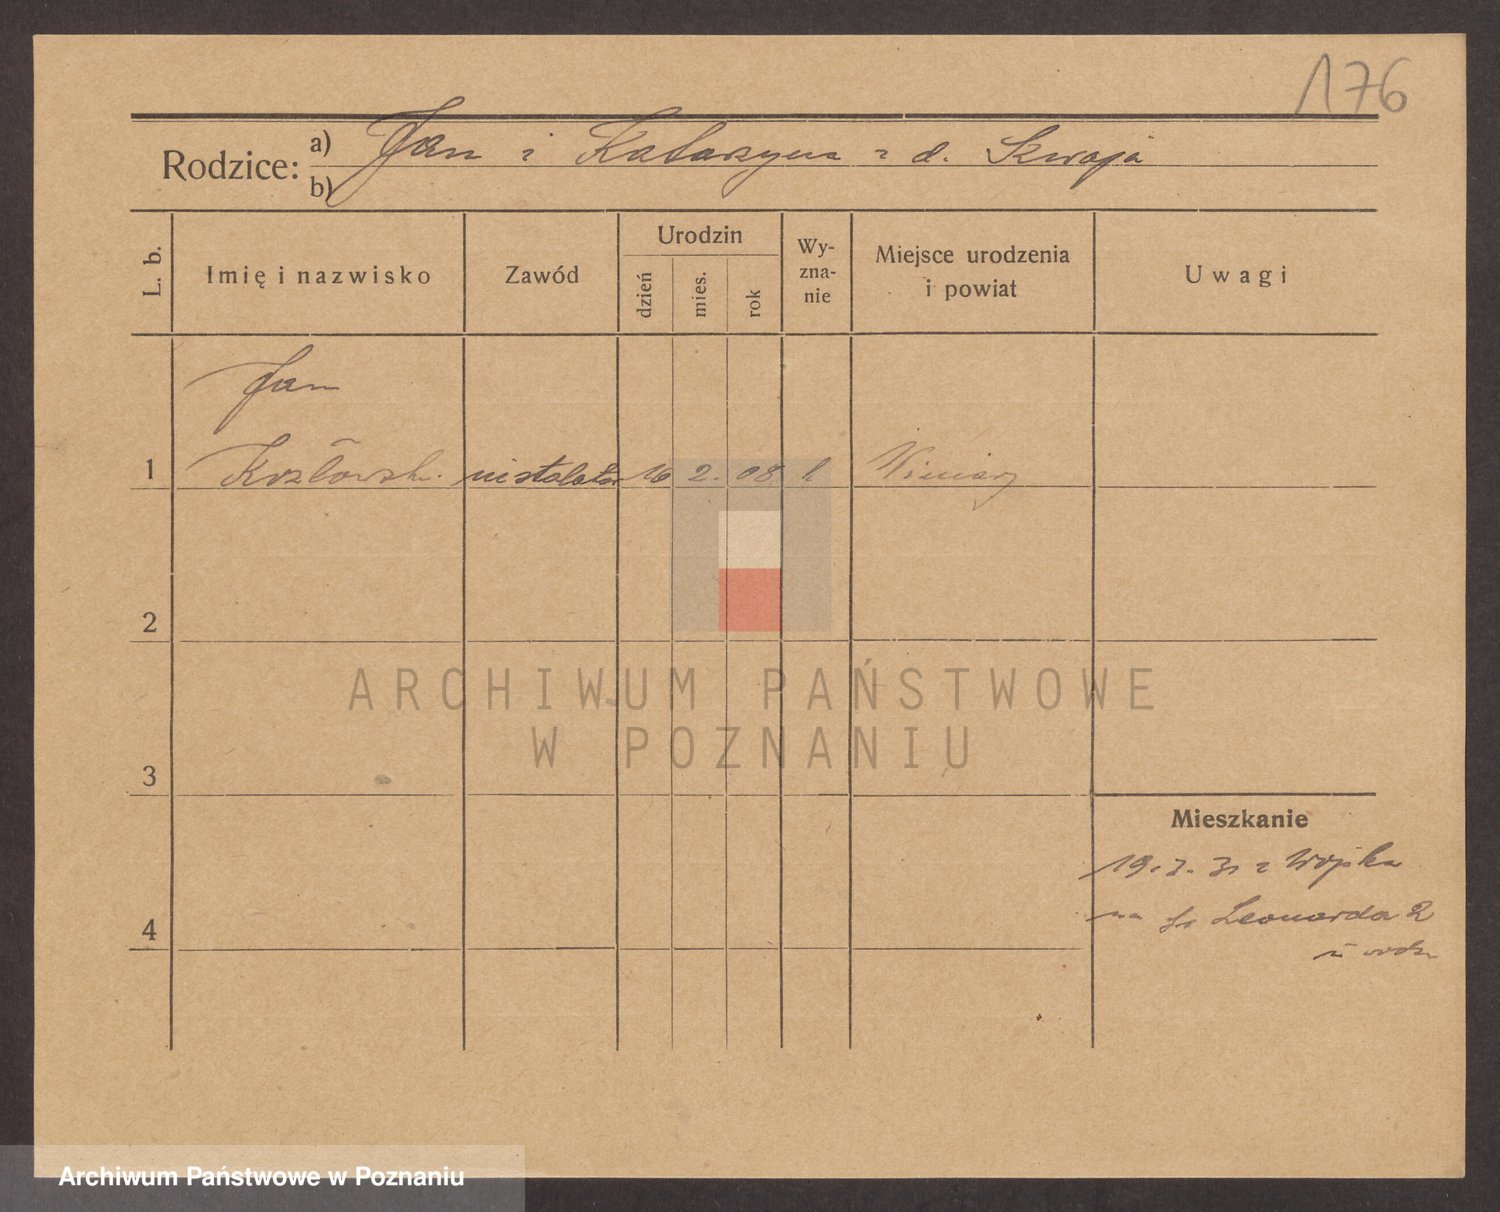 176
Rodzice: a) Jan i Katarzyna z d. Szwaja
b)
L. b.
Imię i nazwisko
Zawód
Urodzin
dzień
mies.
rok
Wy-
zna-
nie
Miejsce urodzenia
i powiat
Uwagi
Jan
1 Kozłowski instalator 16 2. 08 k Winiary
2
3
4
Mieszkanie
19.3.31 z Wojska
na św Leonarda 2
ARCHIWUM PAŃSTWOWE
W POZNANIU
Archiwum Państwowe w Poznaniu